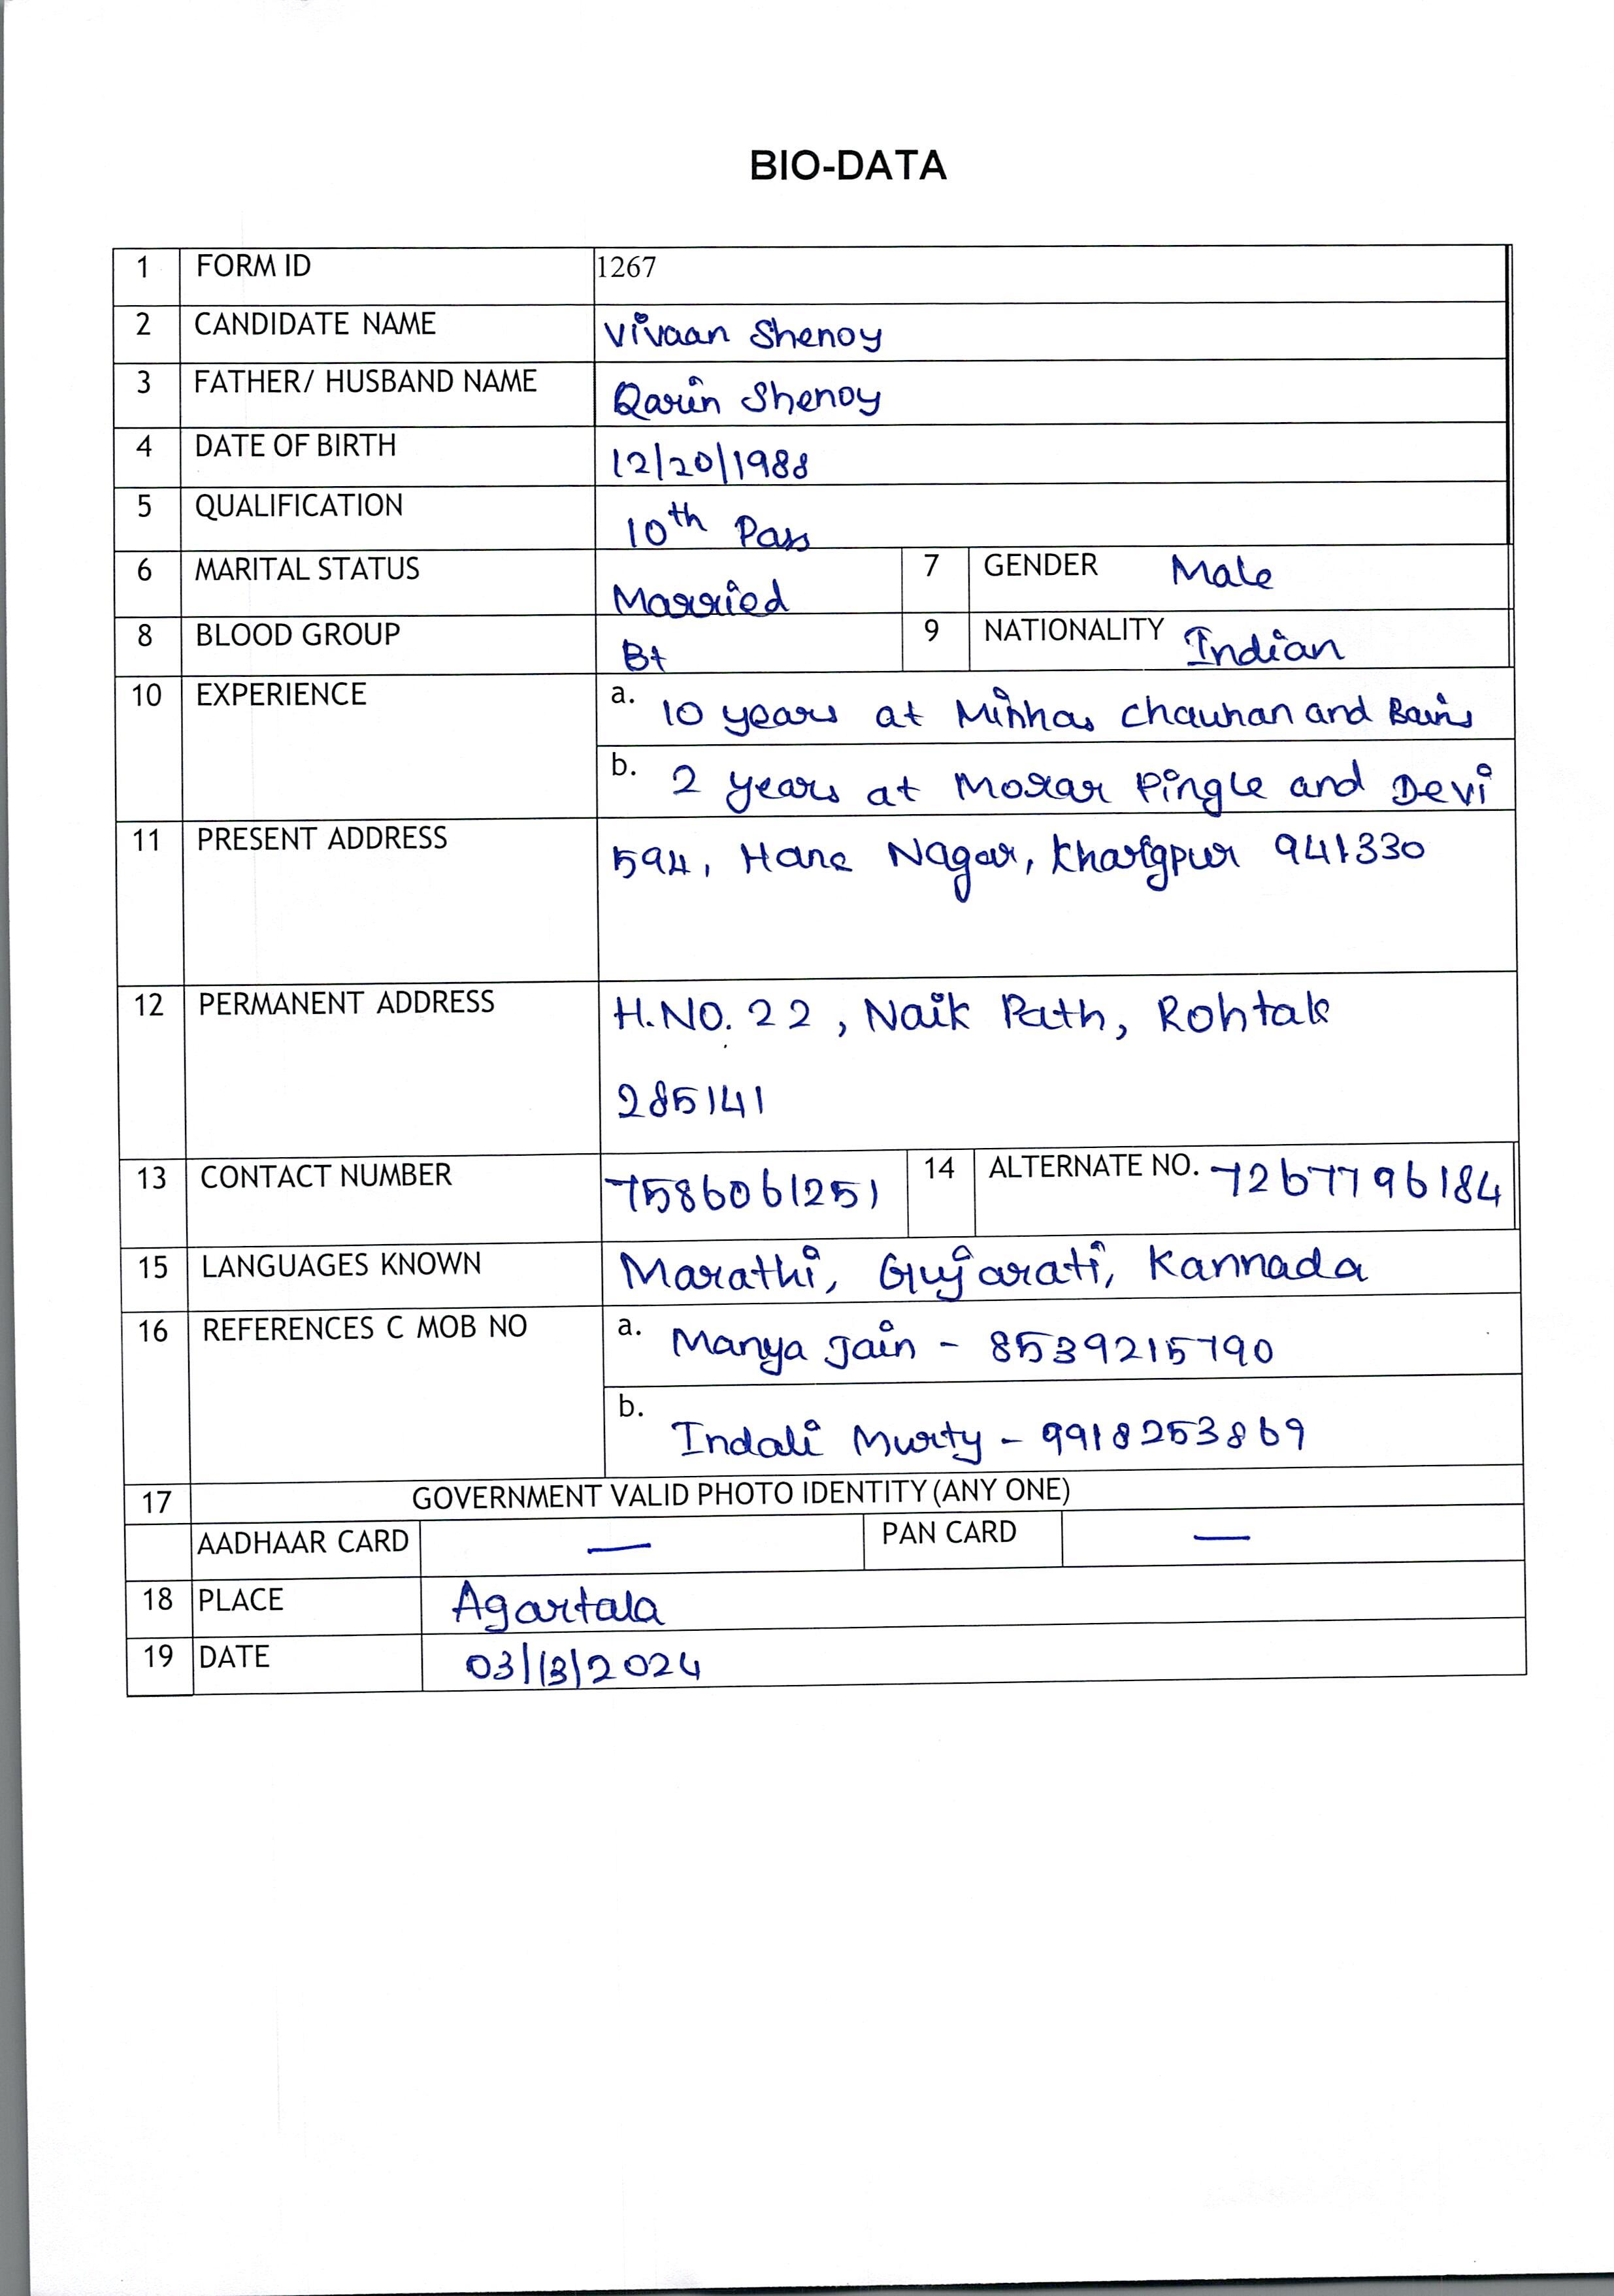 BIO-DATA
1 FORM ID 1267
2 CANDIDATE NAME Vivaan Shenoy
3 FATHER/ HUSBAND NAME Qarin Shenoy
4 DATE OF BIRTH 12/20/1988
5 QUALIFICATION 10th Pass
6 MARITAL STATUS Married 7 GENDER Male
8 BLOOD GROUP B+ 9 NATIONALITY Indian
10 EXPERIENCE a. 10 years at Minhas Chauhan and Bains
b. 2 years at Morar Pingle and Devi
11 PRESENT ADDRESS 594, Nagar, 941330
12 PERMANENT ADDRESS H.NO. 22, Naik Path, Rohtak
285141
13 CONTACT NUMBER 7586061251 14 ALTERNATE NO. 7267796184
15 LANGUAGES KNOWN Marathi, Gujarati, Kannada
16 REFERENCES C MOB NO a. Manya Jain - 8539215790
b. Indali Murty - 9918253869
17 GOVERNMENT VALID PHOTO IDENTITY (ANY ONE)
AADHAAR CARD — PAN CARD —
18 PLACE Agartala
19 DATE 03/13/2024